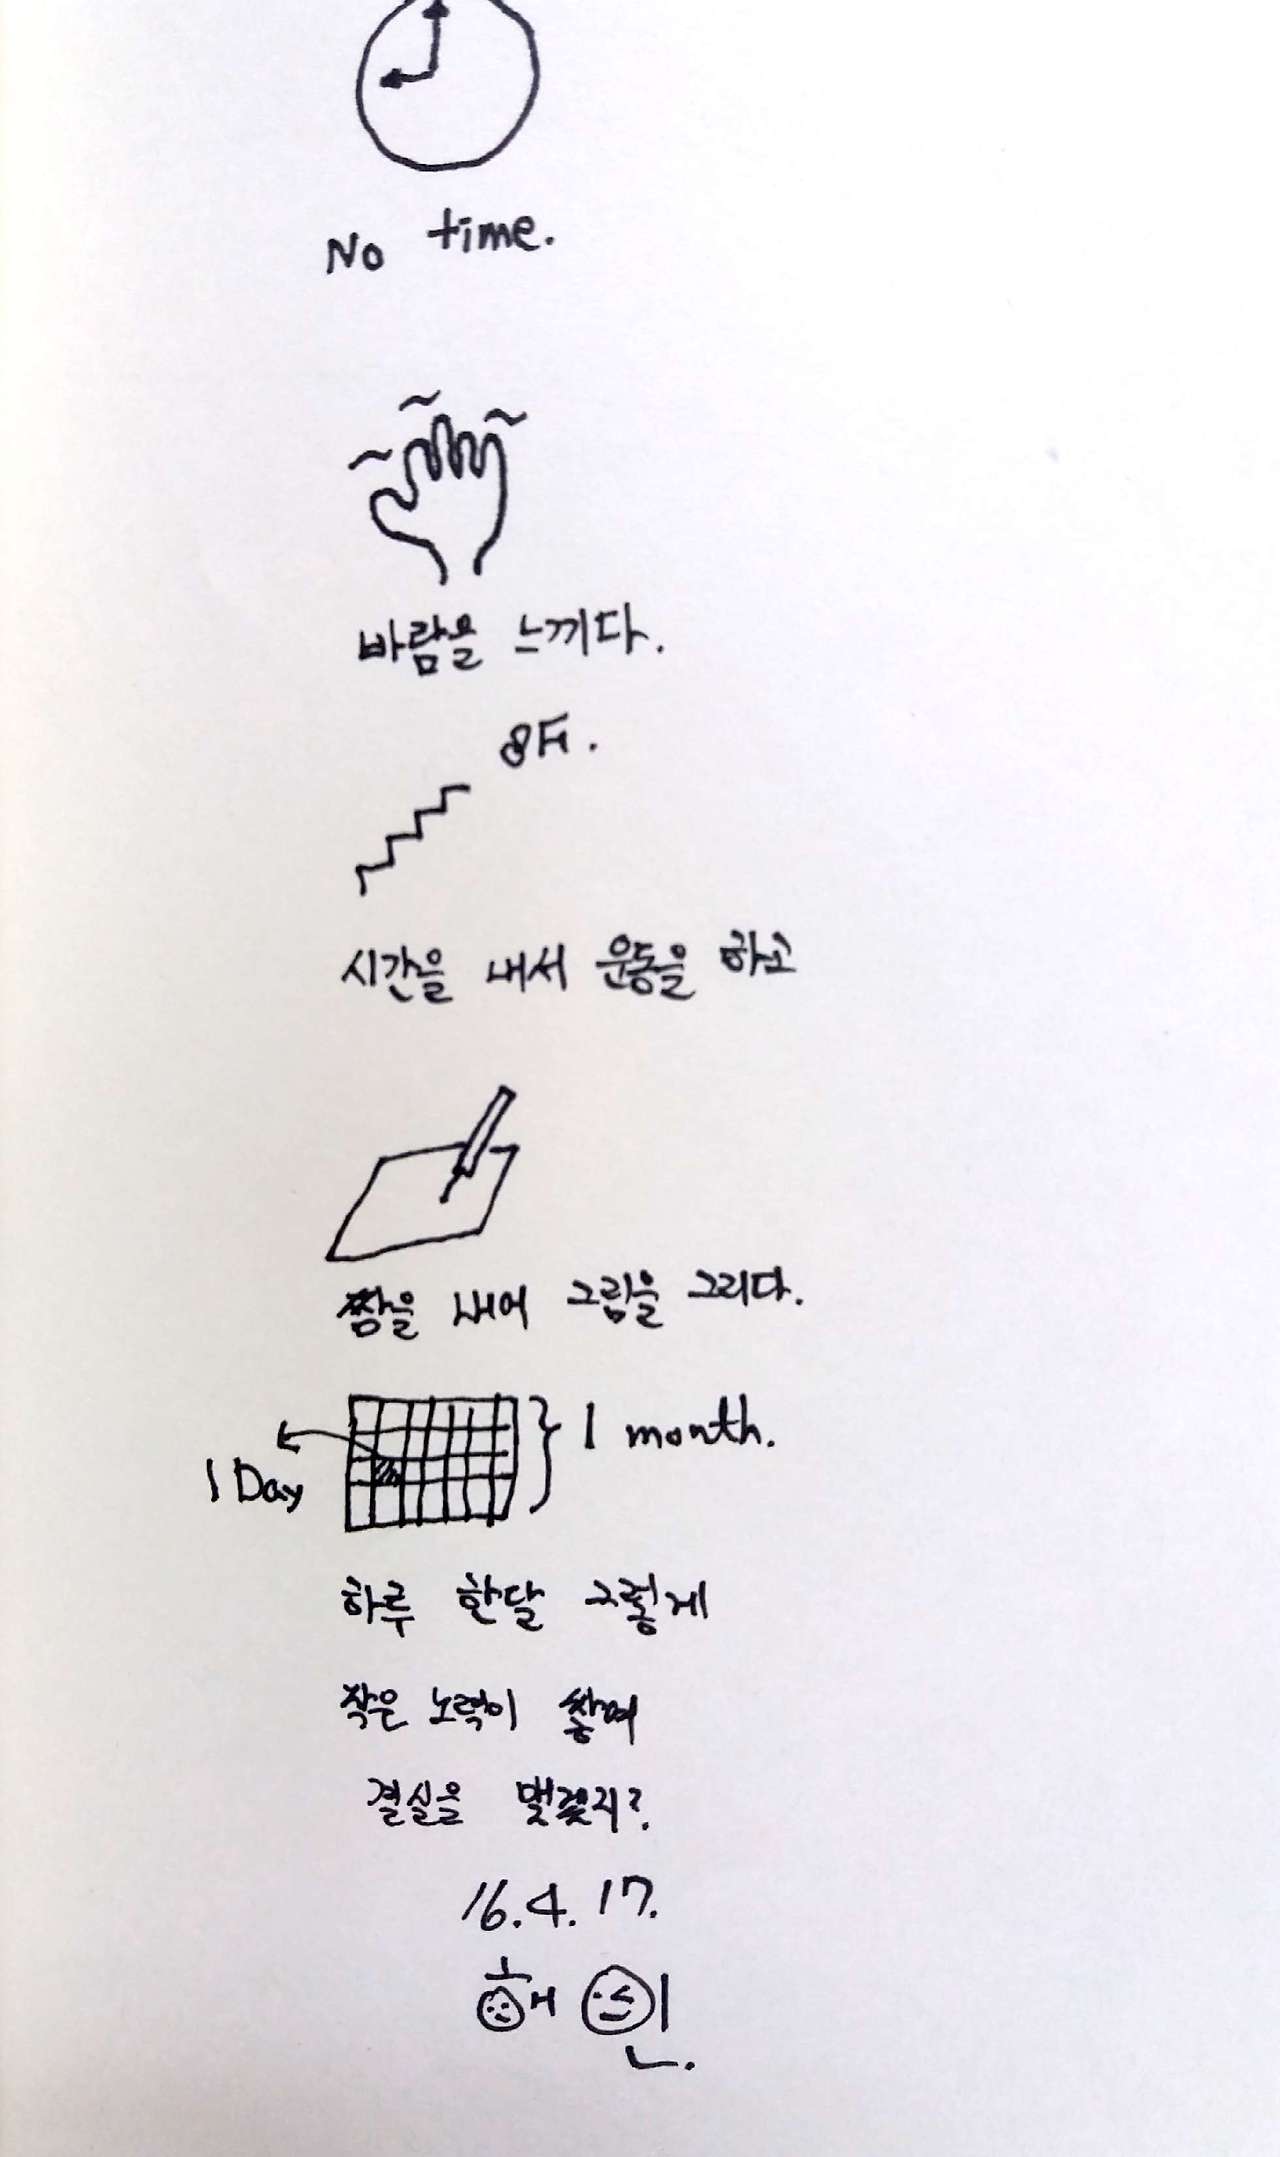 No time.
바람을 느끼다.
8F.
시간을 내서 운동을 하고
짬을 내어 그림을 그리다.
1 month.
1 Day
하루 한달 그렇게
작은 노력이 쌓여
결실을 맺겠지?
16.4.17.
해인.